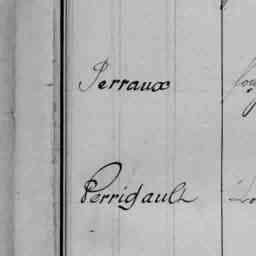 Perraux
Perrigault